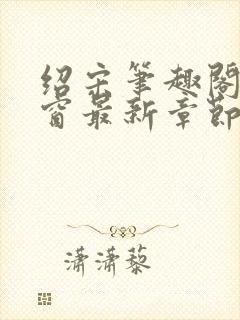 绍宋笔趣阁
窗最新章节
潇潇藜